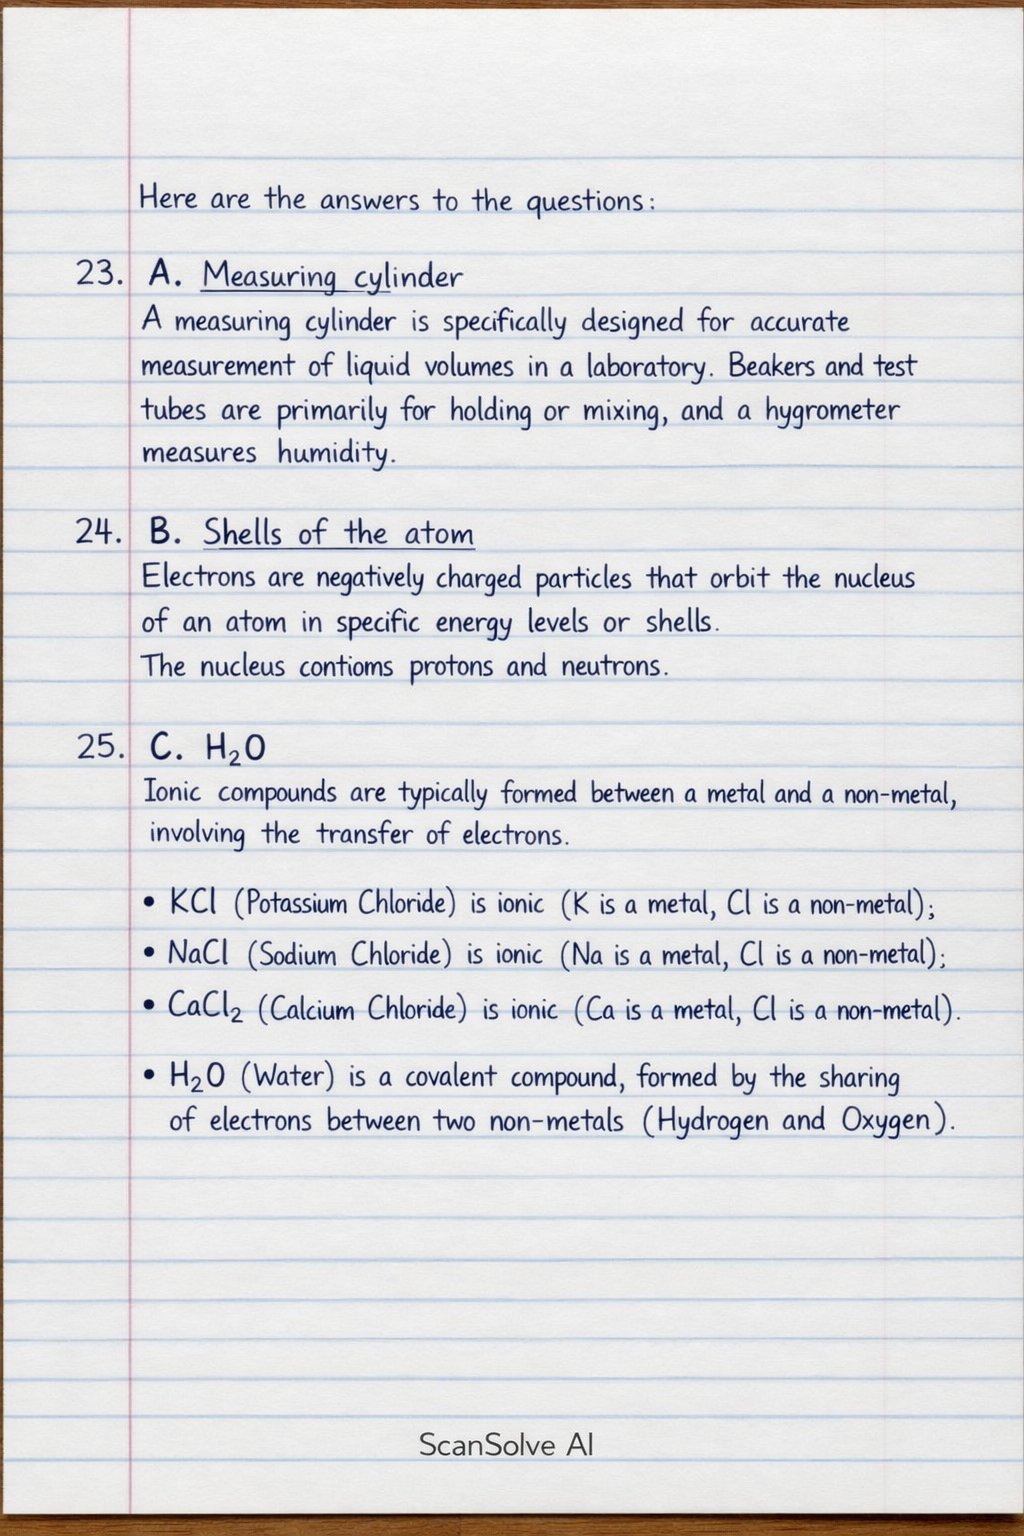 Here are the answers to the questions:
23. A. Measuring cylinder
A measuring cylinder is specifically designed for accurate
measurement of liquid volumes in a laboratory. Beakers and test
tubes are primarily for holding or mixing, and a hygrometer
measures humidity.
24. B. Shells of the atom
Electrons are negatively charged particles that orbit the nucleus
of an atom in specific energy levels or shells.
The nucleus contioms protons and neutrons.
25. C. H₂O
Ionic compounds are typically formed between a metal and a non-metal,
involving the transfer of electrons.
• KCl (Potassium Chloride) is ionic (K is a metal, Cl is a non-metal);
• NaCl (Sodium Chloride) is ionic (Na is a metal, Cl is a non-metal);
• CaCl₂ (Calcium Chloride) is ionic (Ca is a metal, Cl is a non-metal).
• H₂O (Water) is a covalent compound, formed by the sharing
of electrons between two non-metals (Hydrogen and Oxygen).
ScanSolve AI